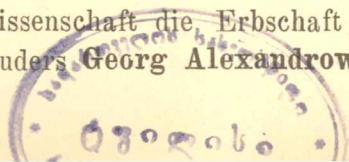 issenschaft die Erbschaft
uders Georg Alexandrow
ტფილისი